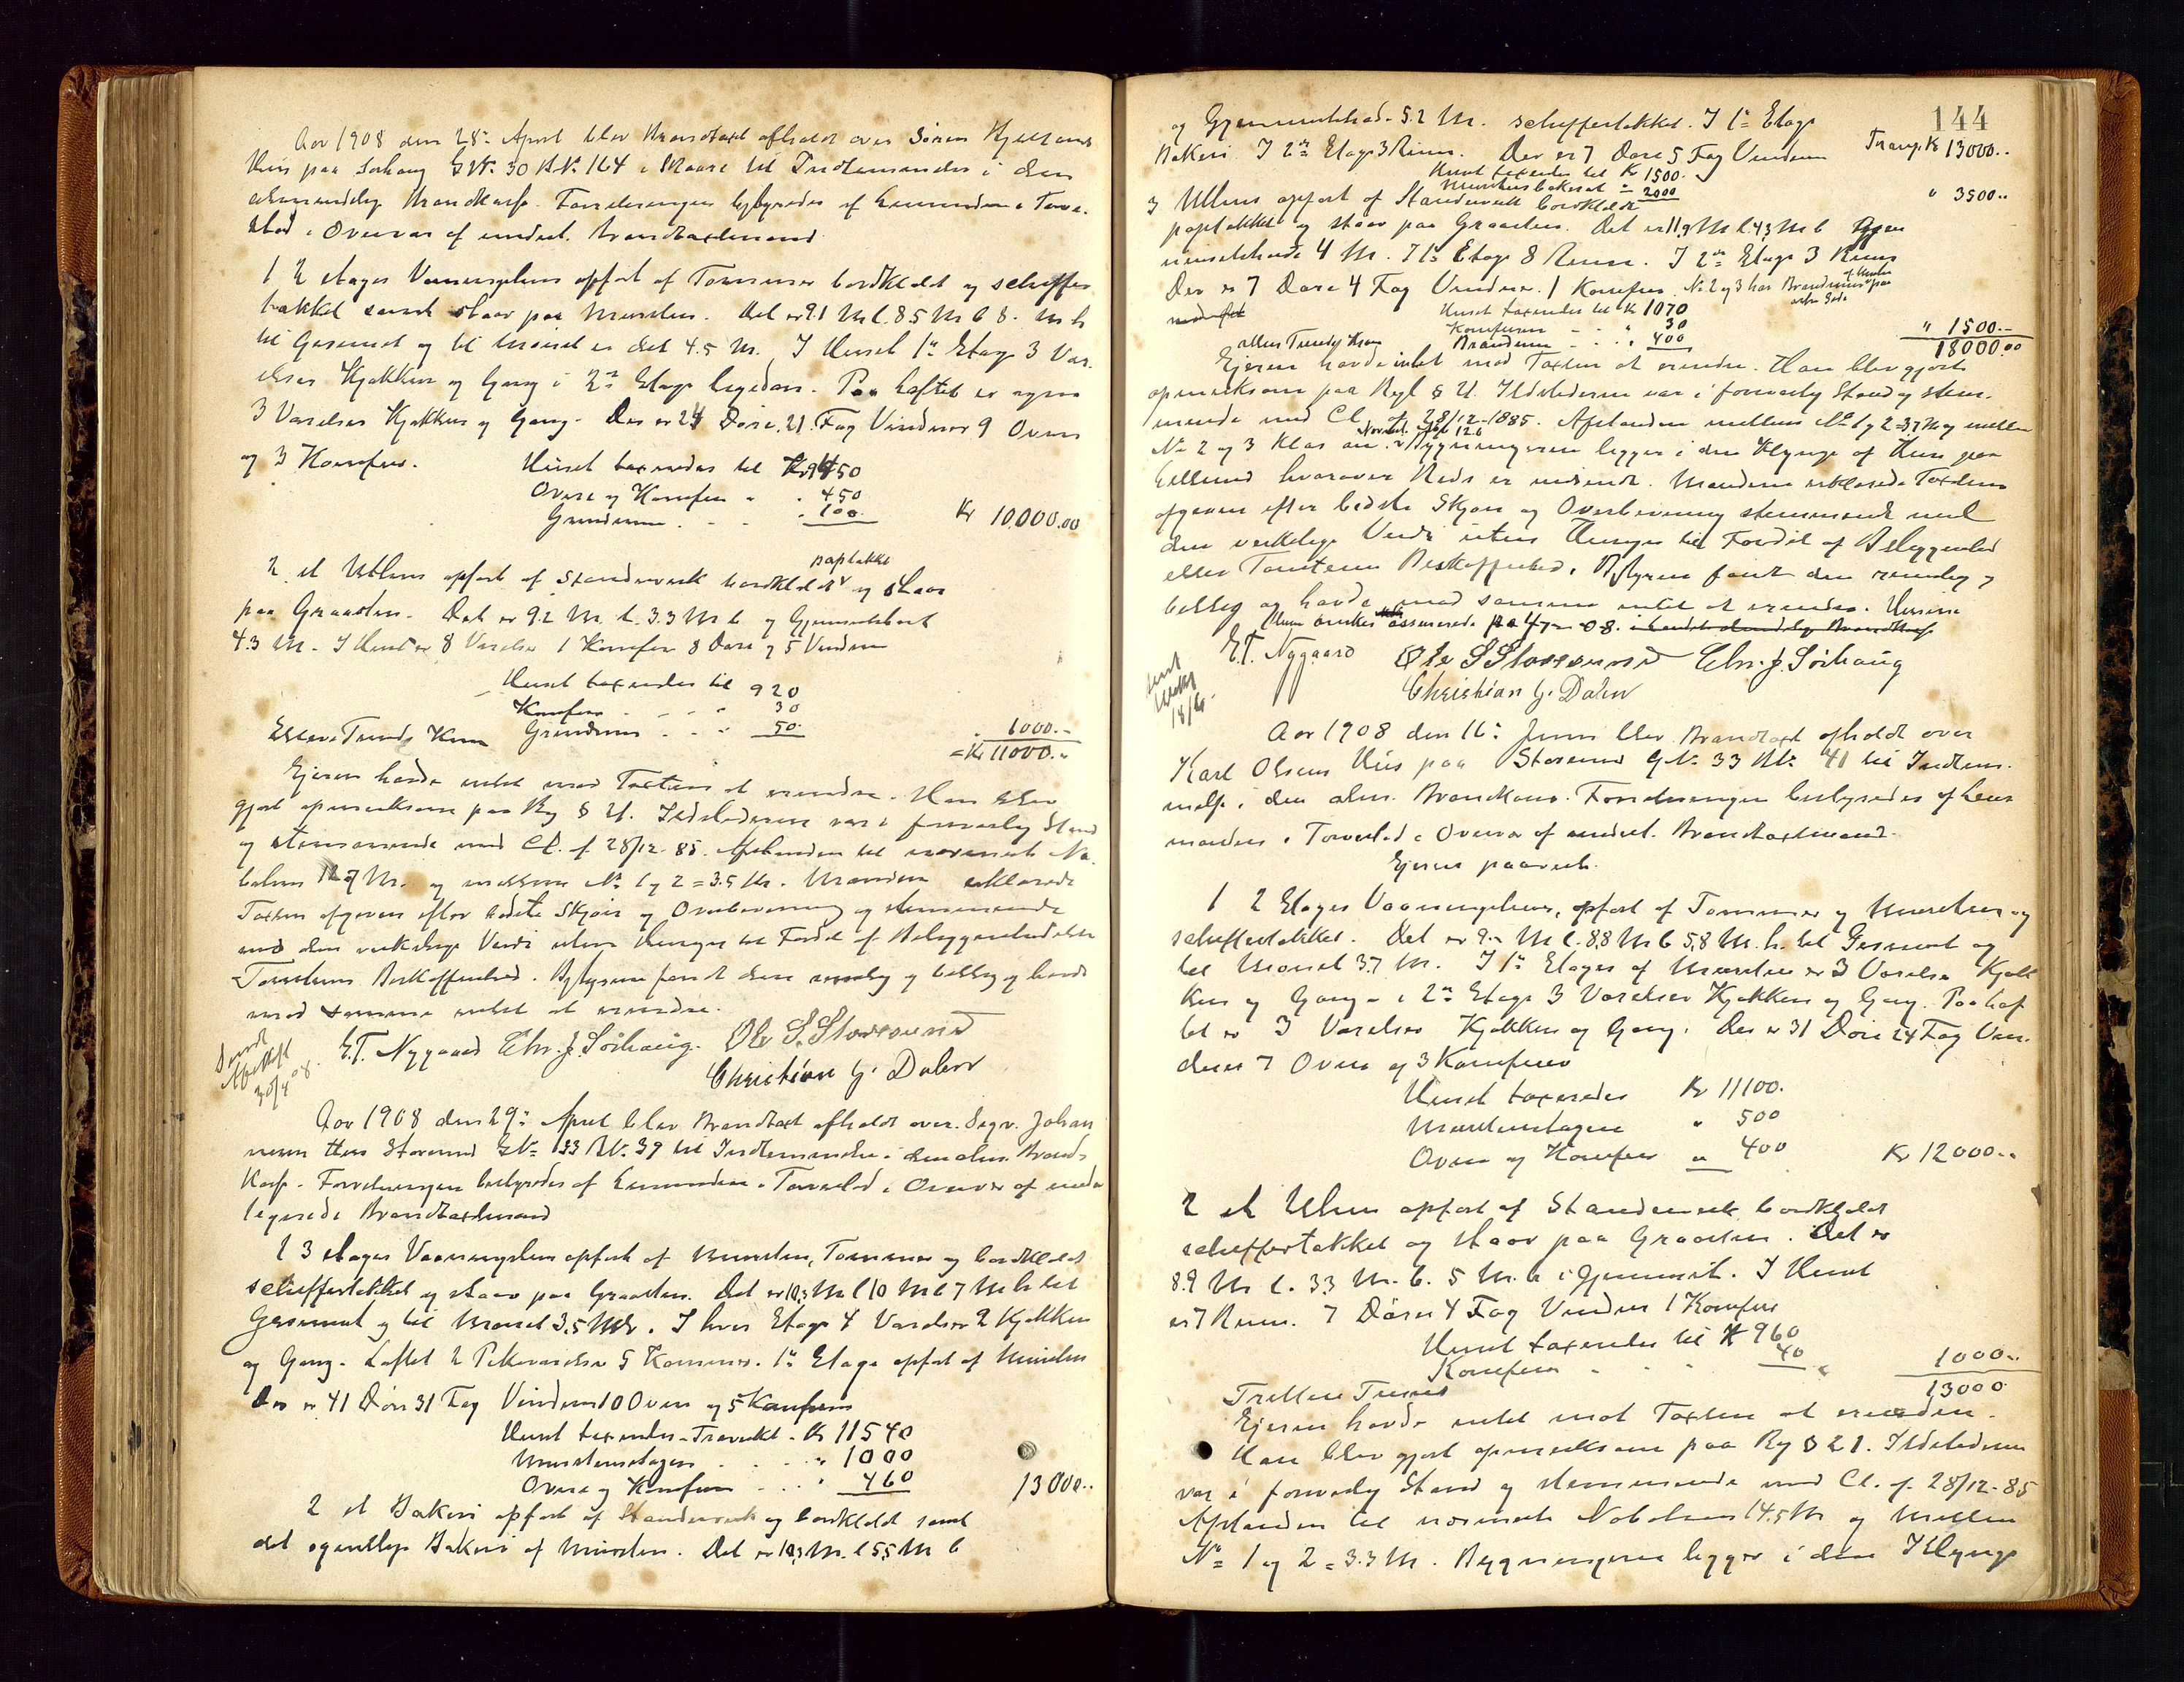 Aar 1908 den 28de April blev Brandtaxt afholdt over Sören Kjellands
Hus paa Sörhaug G.No. 30 B.No. 164 i Skaare til Indlemmelse i den
almindelig Brandkasse. Forretningen bestyredes af Lensmanden i Torve-
stad i Overvær af undert. Brandtaxtmænd.
1 2 etages Vaaningshus opfört af Tømmer bordklædt og scheiffer
tækket samt staar paa Mursten. Det er 9.1 M l. 8.5 M b 8. M h
til Gesimset og til Mønet er det 4.5 M. I Huset 1ste Etage 3 Væ-
relser Kjøkken og Gang i 2den Etage ligedan. Paa Loftet er ogsaa
3 Værelser Kjøkken og Gang. Der er 24 Døre, 21 Fag Vinduer 9 Ovne
og 3 Komfurer. Huset taxeredes til Kr 9450
Ovne og Komfurer " " 450
Grundmur " " 100. Kr 10,000.00
2 et Uthus opfört af Standerverk bordklædt paptækket og staar
paa Graasten. Det er 9.2 M. l. 3.3 M b og Gjennemsnitshøit
4.3 M. I Huset er 8 Værelser 1 Komfur 8 Døre og 5 Vinduer
Huset taxeredes til 920
Komfur " 30
Elleve Tusinde Kroner Grundmur " 50. " 1000.-
= Kr 11000.-
Ejeren havde intet mod Taxten at erindre. Han blev
gjort opmerksom paa Rg § 21. Ildstederne var i forsvarlig Stand
og stemmende med Cl. af 28/12-85. Afstanden til nærmeste Na-
bohus 12.7 M. og mellem No 1 og 2 = 3.5 M. Mændene erklærede
Taxten afgiven efter bedste Skjön og Overbevisning og stemmende
med den virkelige Verdi uten Hensyn til Fordel af Beliggenhed eller
Tomtens Beskaffenhed. Bestyreren fandt den rimelig og billig og havde
mod samme intet at erindre.
E.T. Nygaard Chr. J. Sörhaug. Ole S. Storesund
Christian G. Dalen
Sendt
Afskrift
30/4 08.
Aar 1908 den 29de April blev Brandtaxt afholdt over Sigv. Johan
nesen Hus Storesund G.No. 33 B.No. 39 til Indlemmelse i den alm. Brand-
kasse. Forretningen bestyredes af Lensmanden i Torvestad i Overvær af under
tegnede Brandtaxtmænd
1 3 etages Vaaningshus opfört af Mursten, Tømmer og bordklædt
scheiffertækket og staar paa Graasten. Det er 10,3 M l 10 M b 7 M h til
Gesimset og til Mønet 3.5 M. I hver Etage 4 Værelser 2 Kjøkken
og Gang. Loftet 2 Pikeværelser 5 Kammer. 1ste Etage opfört af Mursten
Der er 41 Dör 31 Fag Vinduer 10 Ovne og 5 Komfurer
Huset taxeredes Træverket - Kr 11540
Murstensetagen " 1000
Ovne og Komfurer " 460 13000..
2 et Bakeri opfört af Standerverk og bordklædt samt
det egentlige Bakeri af Mursten. Det er 10,3 M. l 5,5 M b
144
og Gjennemsnitshøid. 5.2 M. scheiffertækket. I 1ste Etage
Bakeri. I 2den Etage 3 Rum. Der er 7 Døre 5 Fag Vinduer Transp. Kr 13000..
Huset taxeredes til Kr 1500.
Murstensbakeriet " 2000 " 3500..
3 Uthus opfört af Standerverk bordklædt
paptækket og staar paa Graasten. Det er 11,9 M l 4,3 M b Gjen
nemsnitshøide 4 M. I 1ste Etage 8 Rum. I 2den Etage 3 Rum
Der er 7 Døre 4 Fag Vinduer. 1 Komfur. No 2 og 3 har Brandmur
Huset taxeredes til Kr 1070
Komfuren " 30
atten Tusinde Kroner Brandmur " 400 " 1500.-
18000.00
Ejeren havde intet mod Taxten at erindre. Han blev gjort
opmerksom paa Regl § 21. Ildstederne var i forsvarlig Stand og stem-
mende med Cl. af 28/12-1885. Afstanden mellem No 1 og 2 = 3,7 M og mellem
No 2 og 3 Bygningerne ligger i den Klynge af Hus paa
hvorover Rids er indsendt. Mændene erklærede Taxten
afgiven efter bedste Skjön og Overbevisning stemmende med
den verkelige Verdi uten Hensyn til Fordel af Beliggenhed
eller Tomtens Beskaffenhed. Bestyreren fandt den rimelig og
billig og havde mod samme intet at erindre. Husene
ønskes assurerede
E.T. Nygaard Ole S Storesund Chr. J. Sörhaug
Christian G. Dalen
Aar 1908 den 16de Juni blev Brandtaxt afholdt over
Karl Olsens Hus paa Storesund G.No. 33 B.No. 41 til Indlem-
melse i den alm. Brandkasse. Forretningen bestyredes af Lens
manden i Torvestad i Overvær af undert. Brandtaxtmænd.
Ejeren paaviste.
1 2 Etages Vaaningshus, opfört af Tømmer og Mursten og
scheiffertækket. Det er 9.- M l. 8,8 M b 5,8 M. h. til Gesimset og
til Mønet 3.7 M. I 1ste Etages af Mursten er 3 Værelser Kjøk
ken og Gang - i 2den Etage 3 Værelser Kjøkken og Gang. Paa Lof
tet er 3 Værelser Kjøkken og Gang. Der er 31 Döre 24 Fag Vin-
duer 7 Ovne og 3 Komfurer
Huset taxeredes Kr 11100.
Murstensetagen " 500
Ovne og Komfurer " 400 Kr 12000..
2 et Uthus opfört af Standerverk bordklædt
scheiffertækket og staar paa Graasten. Det er
8.9 M l. 3.3 M. b. 5 M. h i Gjennemsnit. I Huset
er 7 Rum. 7 Dører 4 Fag Vinduer 1 Komfur
Huset taxeredes til Kr 960
Komfuren " 40 " 1000..
Tretten Tusind 13000
Ejeren havde intet mot Taxten at erindre.
Han blev gjort opmerksom paa Rg § 21. Ildstederne
var i forsvarlig Stand og stemmende med Cl. af 28/12-85
Afstanden til nærmeste Nabohus 14.5 M og mellem
No 1 og 2 = 3.3 M. Bygningerne ligger i den Klynge